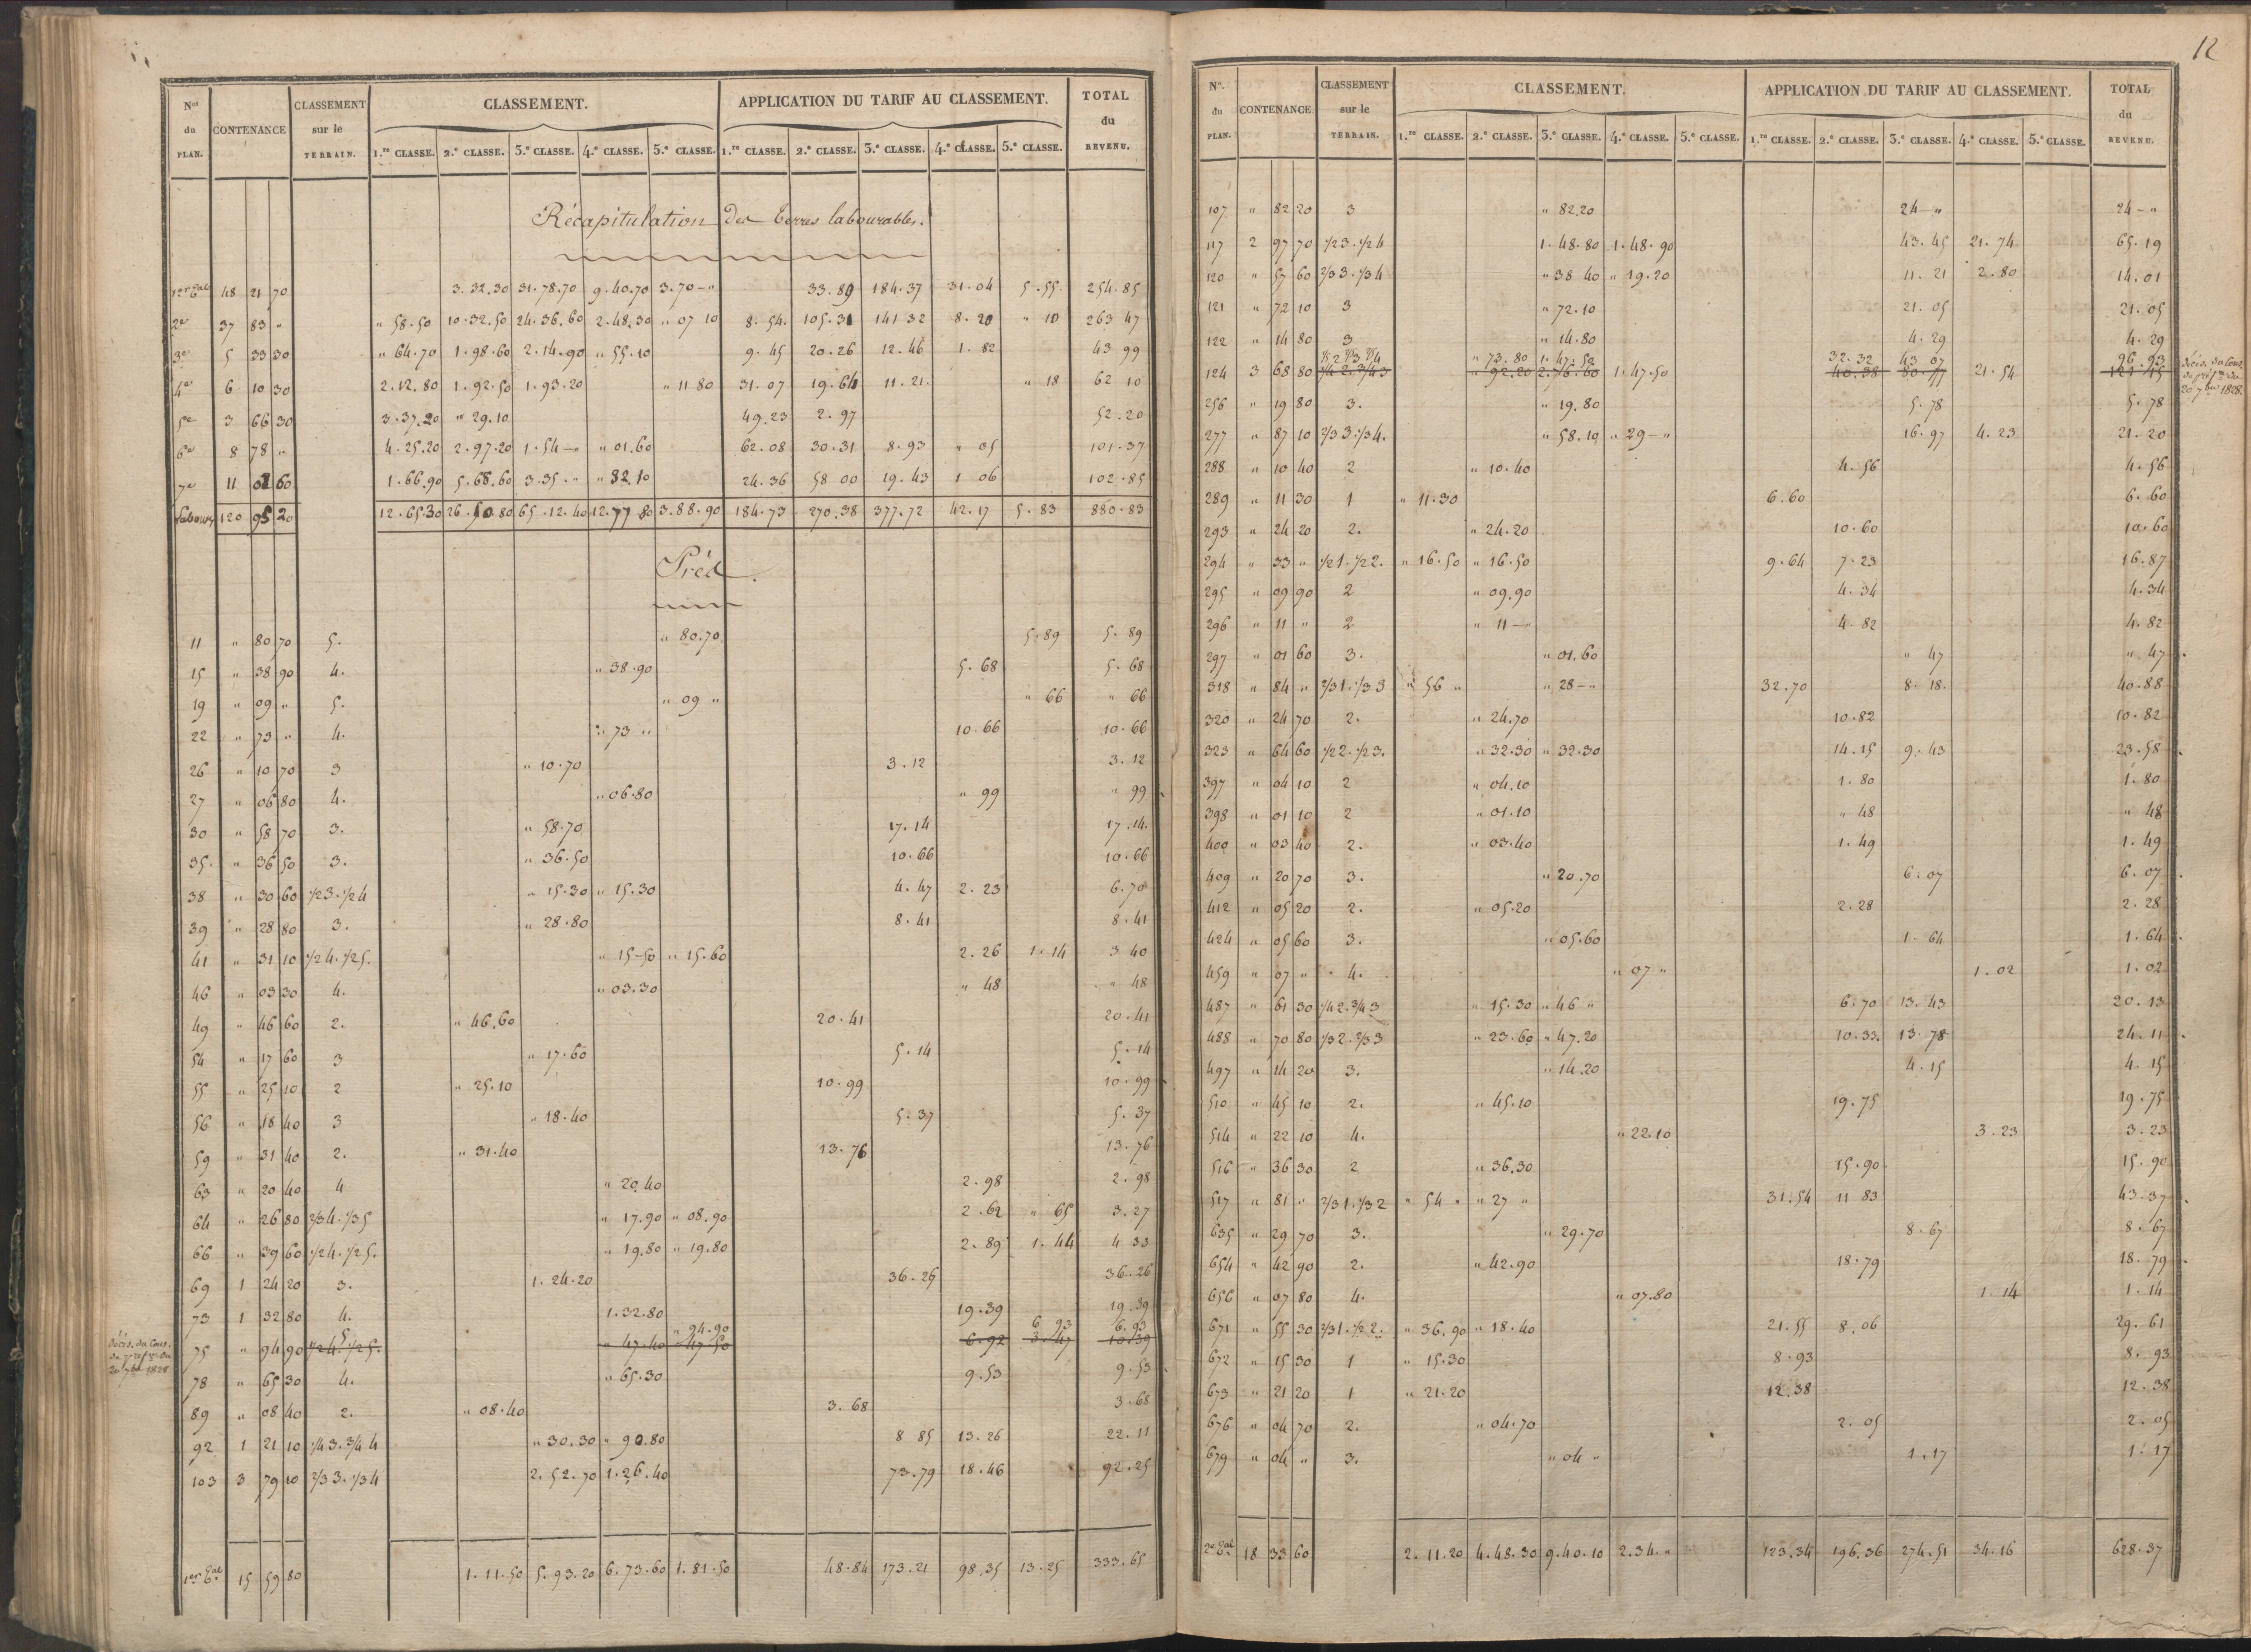 Nos du PLAN. CONTENANCE CLASSEMENT sur le TERRAIN. CLASSEMENT. APPLICATION DU TARIF AU CLASSEMENT. TOTAL du REVENU.
1.re CLASSE. 2.e CLASSE. 3.e CLASSE. 4.e CLASSE. 5.e CLASSE. 1.re CLASSE. 2.e CLASSE. 3.e CLASSE. 4.e CLASSE. 5.e CLASSE.
Récapitulation des terres labourables.
1er Gal 48 21 70 3.32.30 31.78.70 9.40.70 3.70 - " 33.89 184.37 31.04 5.55. 254.85
2e 37 83 " " 58.50 10.32.50 24.36.60 2.48.30 " 07 10 8.54. 105.31 141 32 8.20 " 10 263 47
3e 5 33 30 " 64.70 1.98.60 2.14.90 " 55.10 9.45 20.26 12.46 1.82 43 99
4e 6 10 30 2.12.80 1.92.50 1.93.20 " 11 80 31.07 19.64 11.21. " 18 62 10
5e 3 66 30 3.37.20 " 29.10 49.23 2.97 52.20
6e 8 78 " 4.25.20 2.97.20 1.54 - " " 01.60 62.08 30.31 8.93 " 05 101.37
7e 11 02 60 1.66.90 5.68.60 3.35 . " " 32.10 24.36 58 00 19.43 1 06 102.85
labours 120 95 20 12.65.30 26.50.80 65.12.40 12.77 80 3.88.90 184.73 270.38 377.72 42.17 5.83 880.83
Prés.
11 " 80 70 5. " 80.70 5.89 5.89
15 " 38 90 4. " 38.90 5.68 5.68
19 " 09 " 5. " 09 " " 66 " 66
22 " 73 " 4. " 73 " 10.66 10.66
26 " 10 70 3 " 10.70 3.12 3.12
27 " 06 80 4. " 06.80 " 99 " 99
30 " 58 70 3. " 58.70 17.14 17.14.
35. " 36 50 3. " 36.50 10.66 10.66
38 " 30 60 1/2 3. 1/2 4 " 15.30 " 15.30 4.47 2.23 6.70
39 " 28 80 3. " 28.80 8.41 8.41
41 " 31 10 1/2 4. 1/2 5. " 15-50 " 15.60 2.26 1.14 3 40
46 " 03 30 4. " 03.30 " 48 " 48
49 " 46 60 2. " 46.60 20.41 20.41
54 " 17 60 3 " 17.60 5.14 5.14
55 " 25 10 2 " 25.10 10.99 10.99
56 " 18 40 3 " 18.40 5.37 5.37
59 " 31 40 2. " 31.40 13.76 13.76
63 " 20 40 4 " 20.40 2.98 2.98
64 " 26 80 2/3 4. 1/3 5 " 17.90 " 08.90 2.62 " 65 3.27
66 " 39 60 1/2 4. 1/2 5. " 19.80 " 19.80 2.89 1.44 4 33
69 1 24 20 3. 1.24.20 36.26 36.26
73 1 32 80 4. 1.32.80 19.39 19.39
5. " 94.90 6 93 6.93
75 " 94 90 1/2 4. 1/2 5. " 47.40 " 47.50 6.92 3.47 10.39
décis. du Cons.
de préfre du
20 7bre 1828
78 " 65 30 4. " 65.30 9.53 9.53
89 " 08 40 2. " 08.40 3.68 3.68
92 1 21 10 1/4 3. 3/4 4 " 30.30 " 90.80 8 85 13.26 22.11
103 3 79 10 2/3 3. 1/3 4 2.52.70 1.26.40 73.79 18.46 92.25
1er Gal 15 59 80 1.11.50 5.93.20 6.73.60 1.81.50 48.84 173.21 98.35 13.25 333.65
12
Nos du PLAN. CONTENANCE CLASSEMENT sur le TERRAIN. CLASSEMENT. APPLICATION DU TARIF AU CLASSEMENT. TOTAL du REVENU.
1.re CLASSE. 2.e CLASSE. 3.e CLASSE. 4.e CLASSE. 5.e CLASSE. 1.re CLASSE. 2.e CLASSE. 3.e CLASSE. 4.e CLASSE. 5.e CLASSE.
107 " 82 20 3 " 82.20 24 - " 24 - "
117 2 97 70 1/2 3. 1/2 4 1.48.80 1.48.90 43.45 21.74 65.19
120 " 57 60 2/3 3. 1/3 4 " 38 40 " 19.20 11.21 2.80 14.01
121 " 72 10 3 " 72.10 21.05 21.05
122 " 14 80 3 " 14.80 4.29 4.29
1/5 2 2/5 3 2/5 4 " 73.80 1.47.50 32.32 43 07 96.93
124 3 68 80 1/4 2. 3/4 3 " 92.20 2.76.60 1.47.50 40.38 80.77 21.54 121 15
décis. du Cons.
de préfre du
20 7bre 1828.
256 " 19 80 3. " 19.80 5.78 5.78
277 " 87 10 2/3 3. 1/3 4. " 58.10 " 29 - " 16.97 4.23 21.20
288 " 10 40 2 " 10.40 4.56 4.56
289 " 11 30 1 " 11.30 6.60 6.60
293 " 24 20 2. " 24.20 10.60 10.60
294 " 33 " 1/2 1. 1/2 2. " 16.50 " 16.50 9.64 7.23 16.87
295 " 09 90 2 " 09.90 4.34 4.34
296 " 11 " 2 " 11 - " 4.82 4.82
297 " 01 60 3. " 01.60 " 47 " 47
318 " 84 " 2/3 1. 1/3 3 " 56 " " 28 - " 32.70 8.18. 40.88
320 " 24 70 2. " 24.70 10.82 10.82
323 " 64 60 1/2 2. 1/2 3. " 32.30 " 32.30 14.15 9.43 23.58
397 " 04 10 2 " 04.10 1.80 1.80
398 " 01 10 2 " 01.10 " 48 " 48
400 " 03 40 2. " 03.40 1.49 1.49
409 " 20 70 3. " 20.70 6.07 6.07
412 " 05 20 2. " 05.20 2.28 2.28
424 " 05 60 3. " 05.60 1.64 1.64
459 " 07 " 4. " 07 " 1.02 1.02
487 " 61 30 1/4 2. 3/4 3 " 15.30 " 46 " 6.70 13.43 20.13
488 " 70 80 1/3 2. 2/3 3 " 23.60 " 47.20 10.33. 13.78 24.11
497 " 14 20 3. " 14.20 4.15 4.15
510 " 45 10 2. " 45.10 19.75 19.75
514 " 22 10 4. " 22.10 3.23 3.23
516 " 36 30 2 " 36.30 15.90 15.90
517 " 81 " 2/3 1. 1/3 2 " 54 " " 27 " 31.54 11 83 43.37
635 " 29 70 3. " 29.70 8.67 8.67
654 " 42 90 2. " 42.90 18.79 18.79
656 " 07 80 4. " 07.80 1.14 1.14
671 " 55 30 2/3 1. 1/2 2. " 36.90 " 18.40 21.55 8.06 29.61
672 " 15 30 1 " 15.30 8.93 8.93
673 " 21 20 1 " 21.20 12.38 12.38
676 " 04 70 2. " 04.70 2.05 2.05
679 " 04 " 3. " 04 " 1.17 1.17
2e Gal 18 33 60 2.11.20 4.48.30 9.40.10 2.34. " 123.34 196.36 274.51 34.16 628.37